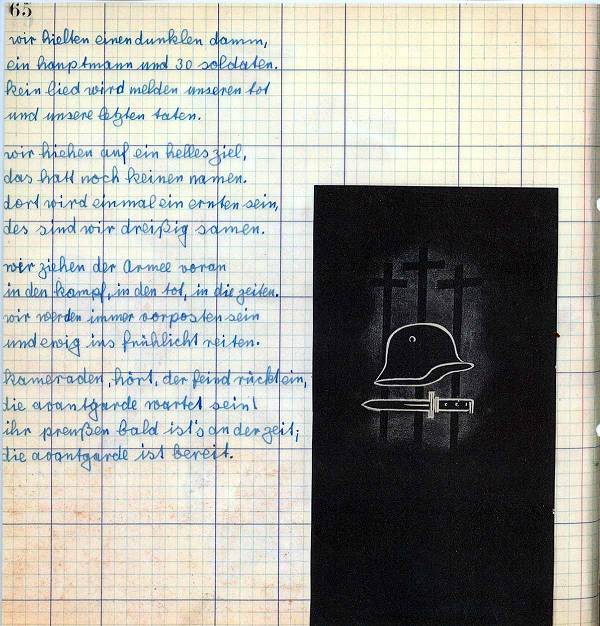 65
wir hielten einen dunklen damm,
ein hauptmann und 30 soldaten.
kein lied wird melden unseren tot
und unsere letzten taten.
wir hiehen auf ein helles ziel,
das hatt noch keinen namen.
dort wird einmal ein ernten sein,
des sind wir dreißig samen.
wir ziehen der Armee voran
in den kampf, in den tot, in die zeiten.
wir werden immer vorposten sein
und ewig ins frühlicht reiten.
kameraden, hört, der feind rückt ein,
die avantgarde wartet sein!
ihr preußen bald ist's an der zeit;
die avantgarde ist bereit.